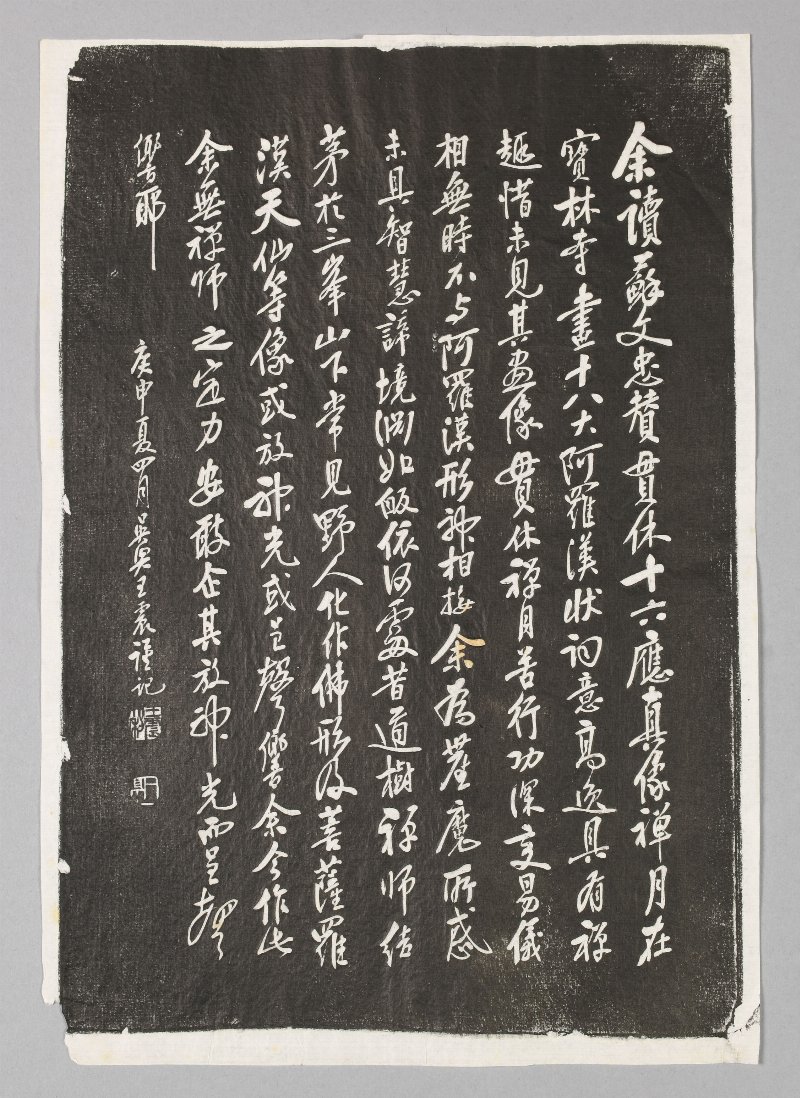 余讀蘇文忠贊貫休十六應真像禪月在
寶林寺畫十八大阿羅漢狀詞意高逸具有禪
趣惜未見其畫像貫休禪月苦行功深變易儀
相無時不与阿羅漢形神相接余為塵魔所惑
未具智慧諦境渊如皈依何處昔道樹禪師結
茅於三峯山下常見野人化作佛形及菩薩羅
漢天仙等像或放神光或呈聲響余今作此
余無禪師之定力安敢企其放神光而呈聲
響耶
庚申夏四月吳興王震謹記